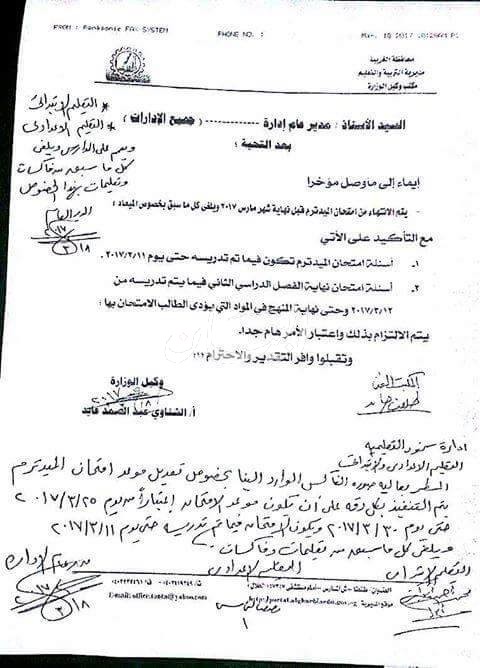 FROM : Panksonic FAX SYSTEM PHONE NO. : Mar. 18 2017
محافظة الغربية
مديرية التربية والتعليم
مكتب وكيل الوزارة
* التعليم الابتدائى
* التعليم الاعدادى
السيد الأستاذ / مدير عام إدارة ------------ ( جميع الإدارات )
بعد التحية ؛
ويعمم على المدارس ويلغى
كل ما سبقه من فاكسات
وتعليمات بهذا الخصوص
المدير العام
٢٠١٧/٣/١٨
إيماء إلى ماوصل مؤخرا
- يتم الانتهاء من امتحان الميدترم قبل نهاية شهر مارس ٢٠١٧ ويلغى كل ما سبق بخصوص الميعاد :
مع التأكيد على الأتي
١. أسئلة امتحان الميدترم تكون فيما تم تدريسه حتى يوم ٢٠١٧/٣/١١.
٢. أسئلة امتحان نهاية الفصل الدراسي الثاني فيما يتم تدريسه من
٢٠١٧/٣/١٢ وحتى نهاية المنهج في المواد التي يؤدى الطالب الامتحان بها ؛
يتم الالتزام بذلك واعتبار الأمر هام جدا.
وتقبلوا وافر التقدير والاحترام ؛؛؛
وكيل الوزارة
٢٠١٧
أ. الشناوي عبد الصمد عايد
المكتب الفنى
إدارة سمنود التعليمية
التعليم الاعدادى والابتدائى
المسطر بعاليه صورة الفاكس الوارد الينا بخصوص تعديل موعد امتحان الميدترم
يتم التنفيذ بكل دقه على أن يكون موعد الامتحان إعتباراً من يوم ٢٠١٧/٣/٢٥
حتى يوم ٢٠١٧/٣/٣٠ ويكون الامتحان فيما تم تدريسه حتى يوم ٢٠١٧/٣/١١
ويلغى كل ما سبقه من تعليمات وفاكسات .
التعليم الابتدائى التعليم الاعدادى مدير عام الإدارة
٢٠١٧/٣/١٨
العنوان : طنطا
Email: office.tanta@yahoo.com
موقع المديرية
١